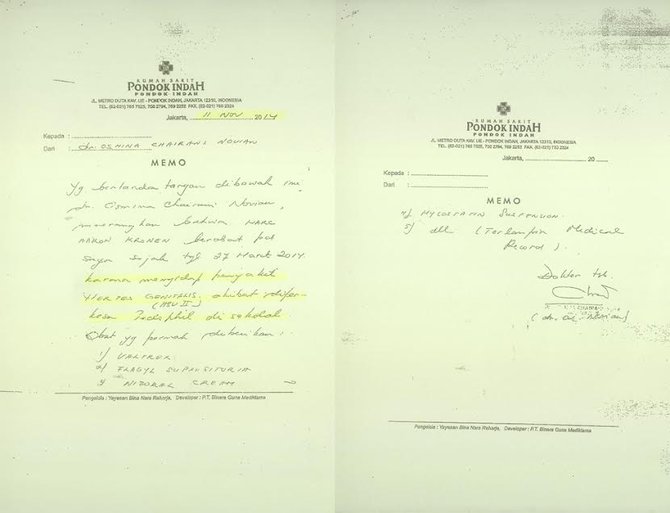 RUMAH SAKIT
PONDOK INDAH
PONDOK INDAH
JL. METRO DUTA KAV. UE - PONDOK INDAH, JAKARTA 12310, INDONESIA
TEL. (62-021) 765 7525, 750 2784, 769 2252 FAX. (62-021) 750 2324
Jakarta, 11 NOV 2014
Kepada :
Dari : dr. CHAIRANI NOVIAN
MEMO
Yg bertanda tangan dibawah ini,
dr. Chairani Novian,
menerangkan bahwa
berobat pd
saya sejak tgl 27 Maret 2014
karena mengidap penyakit
HERPES GENITALIS, akibat
(HSV II)
di sekolah.
Obat yg pernah diberikan :
1) VALTREX
2) FLAGYL
3) NIZORAL CREAM
Pengelola : Yayasan Bina Nara Raharja, Developer : P.T. Binara Guna Mediktama
RUMAH SAKIT
PONDOK INDAH
PONDOK INDAH
JL. METRO DUTA KAV. UE - PONDOK INDAH, JAKARTA 12310, INDONESIA
TEL. (62-021) 765 7525, 750 2784, 769 2252 FAX. (62-021) 750 2324
Jakarta, 20
Kepada :
Dari :
MEMO
4) MYCOSTATIN SUSPENSION.
5) dll (Terlampir Medical
Record).
Dokter tsb.
Pengelola : Yayasan Bina Nara Raharja, Developer : P.T. Binara Guna Mediktama